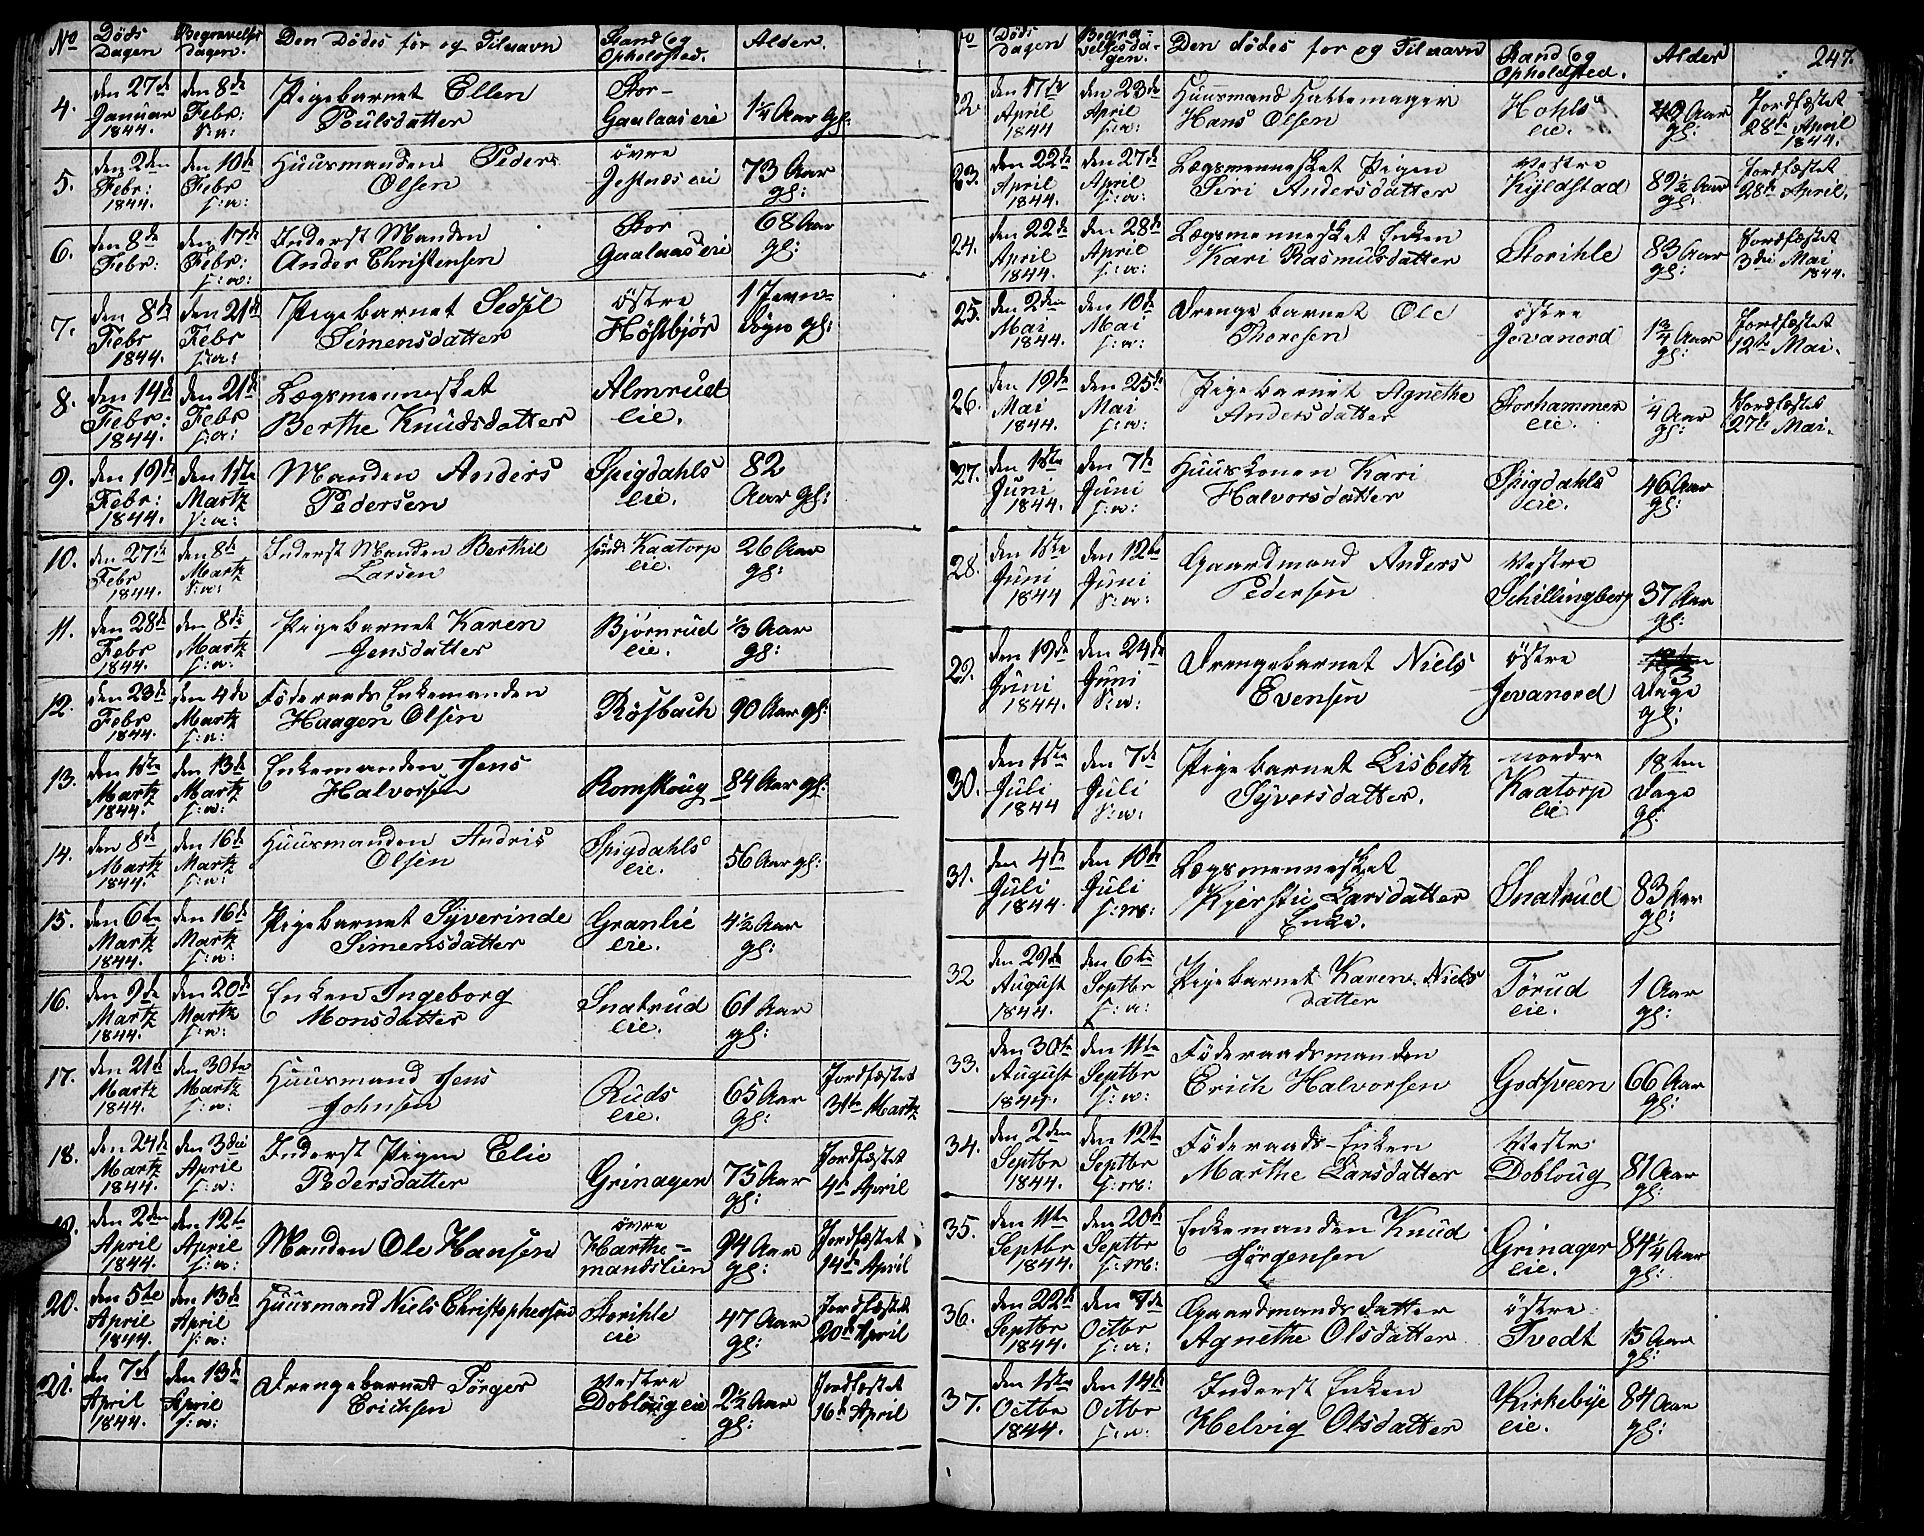 No Döds Dagen Begravelses dagen. Den Dödes for og Tilnavn Stand og Opholdsted. Alder.
4. den 27de Januar 1844. den 8de Febr: s:a: Pigebarnet Ellen Poulsdatter Stor-Gaalaas eie 1¼ Aar gl:
5. den 2den Febr: 1844. den 10de Febr s:a: Huusmanden Peder Olsen övre Jestnæs eie 73 Aar gl:
6. den 8de Febr: den 17de Febr: s:a: Inderst Manden Ander Christensen Stor Gaalaas eie 68 Aar gl:
7. den 8de Febr 1844. den 21de Febr s:a: Pigebarnet Sedsil Simensdatter östre Hösbjör 1 Jevn-dögn gl:
8. den 14de Febr: 1844. den 21de Febr s:a: Lægsmennesket Berthe Knudsdatter Almrud eie.
9. den 19de Febr: 1844. den 1ste Martz s:a: Manden Anders Pedersen Spigdahls eie. 82 Aar gl:
10. den 27de Febr 1844. den 8de Martz s:a: Inderst Manden Berthil Larsen sönd: Kaatorp eie. 26 Aar gl:
11. den 28de Febr 1844. den 8de Martz s:a: Pigebarnet Karen Jensdatter Bjørnrud eie. ⅓ Aar gl:
12. den 23de Febr 1844. den 4de Martz s:a: Föderaads Enkemanden Haagen Olsen Rösbach 90 Aar gl:
13. den 1ste Martz 1844. den 13de Martz s:a: Enkemanden Jens Halvorsen Romskoug 84 Aar gl:
14. den 8de Martz 1844. den 16de Martz s:a: Huusmanden Andris Olsen Spigdahls eie. 56 Aar gl:
15. den 6te Martz 1844. den 16de Martz s:a: Pigebarnet Syverinde Simensdatter Granlie eie. 4½ Aar gl:
16. den 9de Martz 1844. den 20de Martz s:a: Enken Ingeborg Monsdatter Snatrud eie. 61 Aar gl:
17. den 21de Martz 1844. den 30te Martz s:a: Huusmand Jens Johnsen Ruds eie. 65 Aar gl: Jordfæstet 31te Martz
18. den 24de Martz 1844. den 3die April s:a: Inderst Pigen Elie Pedersdatter Grinagen 75 Aar gl: Jordfæstet 4de April
19. den 2den April 1844. den 12te April s:a: Manden Ole Hansen övre Harthe-mandslien 94 Aar gl: Jordfæstet 14de April
20. den 5te April 1844. den 13de April s:a: Huusmand Niels Christophersen Storihle eie 47 Aar gl: Jordfæstet 20de April
21. den 7de April 1844. den 13de April s:a: Drengebarnet Törger Erichsen vestre Dobloug eie 2½ Aar gl: Jordfæstet 16de April
No Döds Dagen Begra-velsesda-gen. Den dödes for og Tilnavn Stand og Opholdsted. Alder 247.
22 den 17de April 1844 den 23de April s:a: Huusmand Hattemager Hans Olsen Hohls eie. 49 Aar gl: Jordfæstet 28de April 1844.
23. den 22de April 1844. den 27de April s:a: Lægsmennesket Pigen Siri Andersdatter Vestre Kyldstad 89½ Aar gl: Jordfæstet 28de April.
24. den 22de April 1844. den 28de April s:a: Lægsmennesket Enken Kari Rasmusdatter Storihle 83 Aar gl: Jordfæstet 3die Mai 1844.
25. den 2den Mai 1844. den 10de Mai s:a: Drenge barnet Ole Thoresen östre Jevanord 1¾ Aar gl: Jordfæstet 12te Mai.
26. den 19de Mai 1844. den 25de Mai s:a: Pigebarnet Agnethe Andersdatter Torhammer eie. ¼ Aar gl: Jordfæstet 27de Mai.
27. den 1ste Juni 1844. den 7de Juni s:a: Huuskonen Kari Halvorsdatter Spigdahls eie. 46 Aar gl:
28. den 1ste Juni 1844 den 12te Juni s:a: Gaardmand Anders Pedersen Vestre Schillingberg 37 Aar gl:
29. den 19de Juni 1844. den 24de Juni s:a: Drengebarnet Niels Evensen östre Jevanord 3 Dage gl:
30. den 1ste Juli 1844 den 7de Juli s:a: Pigebarnet Lisbeth Syversdatter. nordre Kaatorp eie 18ten Dage gl:
31. den 4de Juli 1844. den 10de Juli s:m: Lægsmennesket Kjerstie Larsdatter Enke. Snatrud 83 Aar gl:
32 den 29de August 1844. den 6te Septbr s:a: Pigebarnet Karen Nielsdatter Törud eie. 1 Aar gl:
33. den 30te August 1844. den 11te Septbr s:a: Föderaadsmanden Erich Halvorsen Godsveen 66 Aar gl:
34. den 2den Septbr 1844. den 12te Septbr s:m: Föderaads-Enken Marthe Larsdatter Vestre Dobloug 81 Aar gl:
35. den 11te Septbr 1844. den 20de Septbr s:m: Enkemanden Knud Jörgensen Grinager eie. 84¼ Aar gl:
36. den 22de Septbr 1844. den 7de Octbr s:a: Gaardmandsdatter Agnethe Olsdatter östre Tvedt 15 Aar gl:
37. den 1ste Octbr 1844. den 14de Octbr s:a: Inderst Enken Helvig Olsdatter Kirkebye eie. 84 Aar gl: